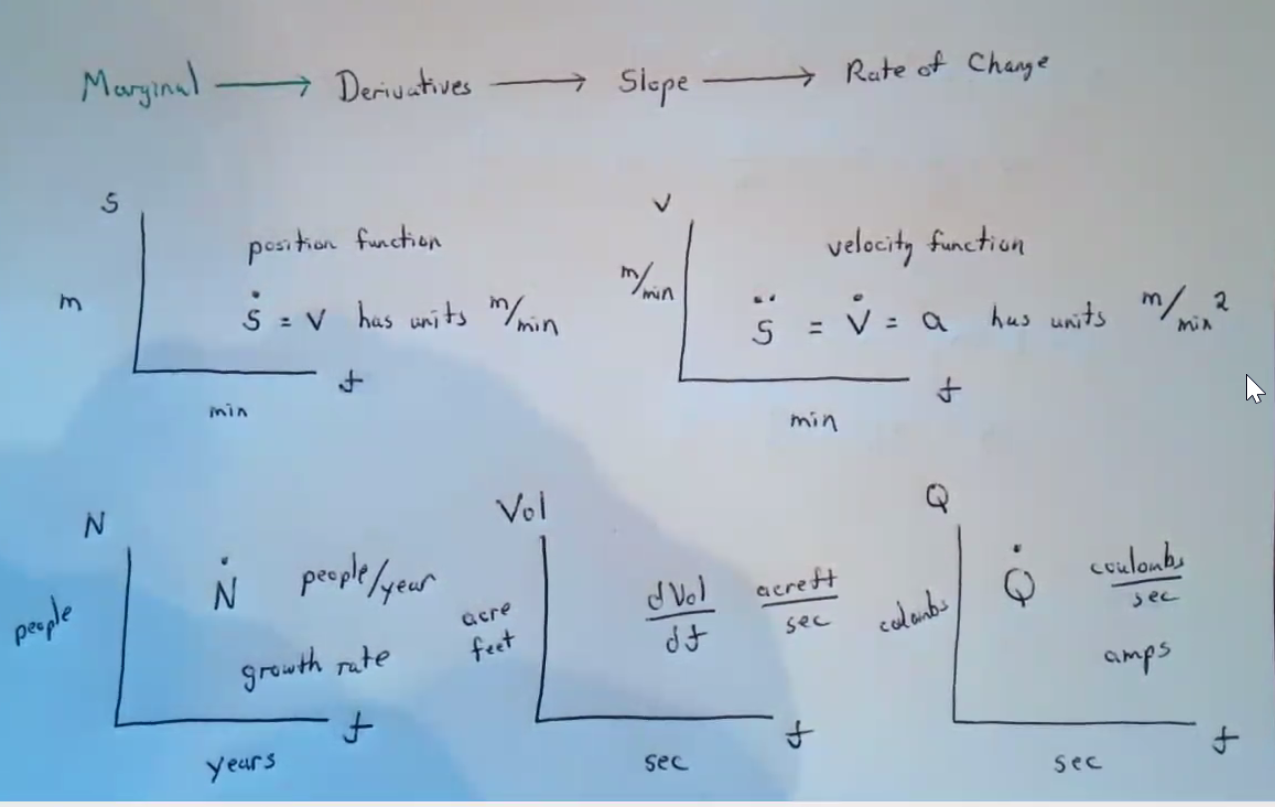 Marginal → Derivatives → Slope → Rate of Change
S
position function
m
Ṡ = V has units m/min
t
min
V
velocity function
m/min
S̈ = V̇ = a has units m/min²
t
min
N
people
Ṅ people/year
growth rate
t
years
Vol
acre
feet
dVol/dt acreft/sec
t
sec
Q
colombs
Q̇ coulombs/sec
amps
t
sec